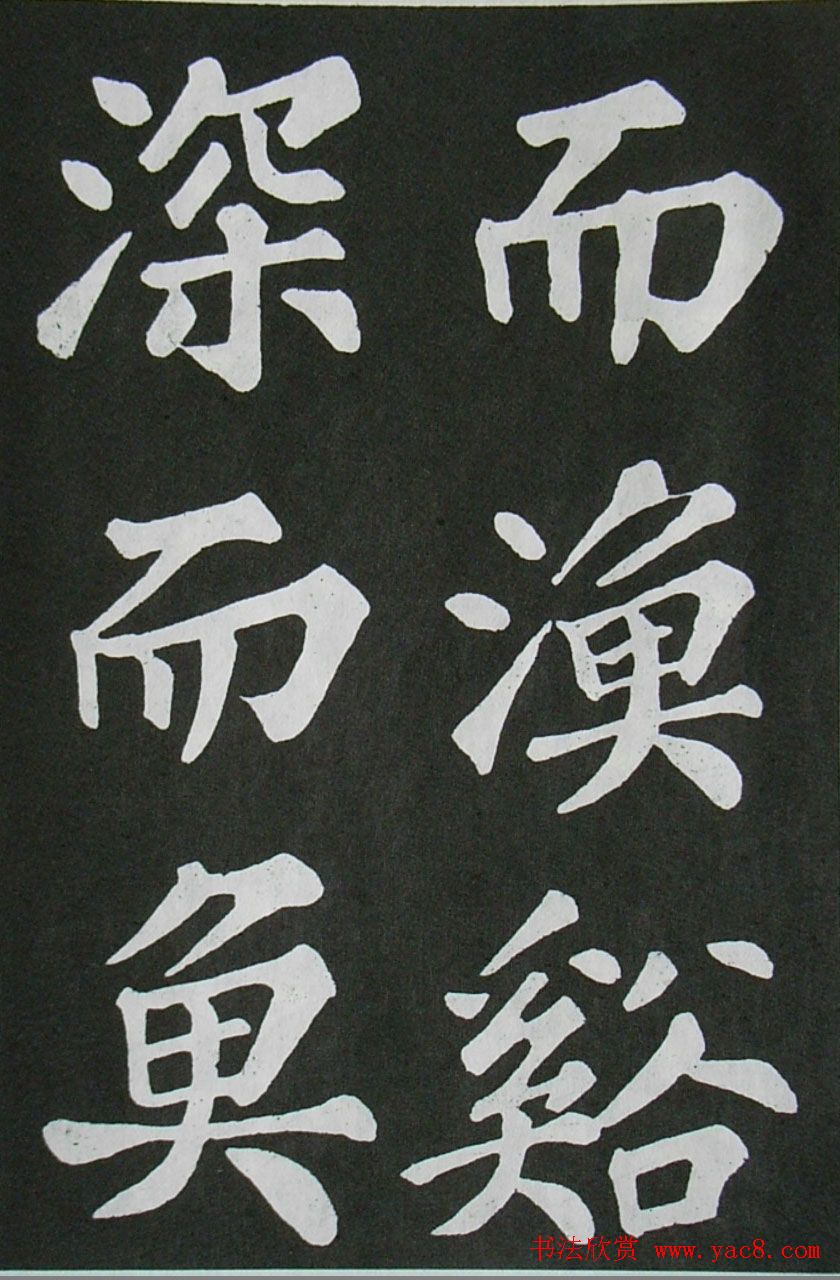 而渔谿
深而鱼
书法欣赏 www.yac8.com